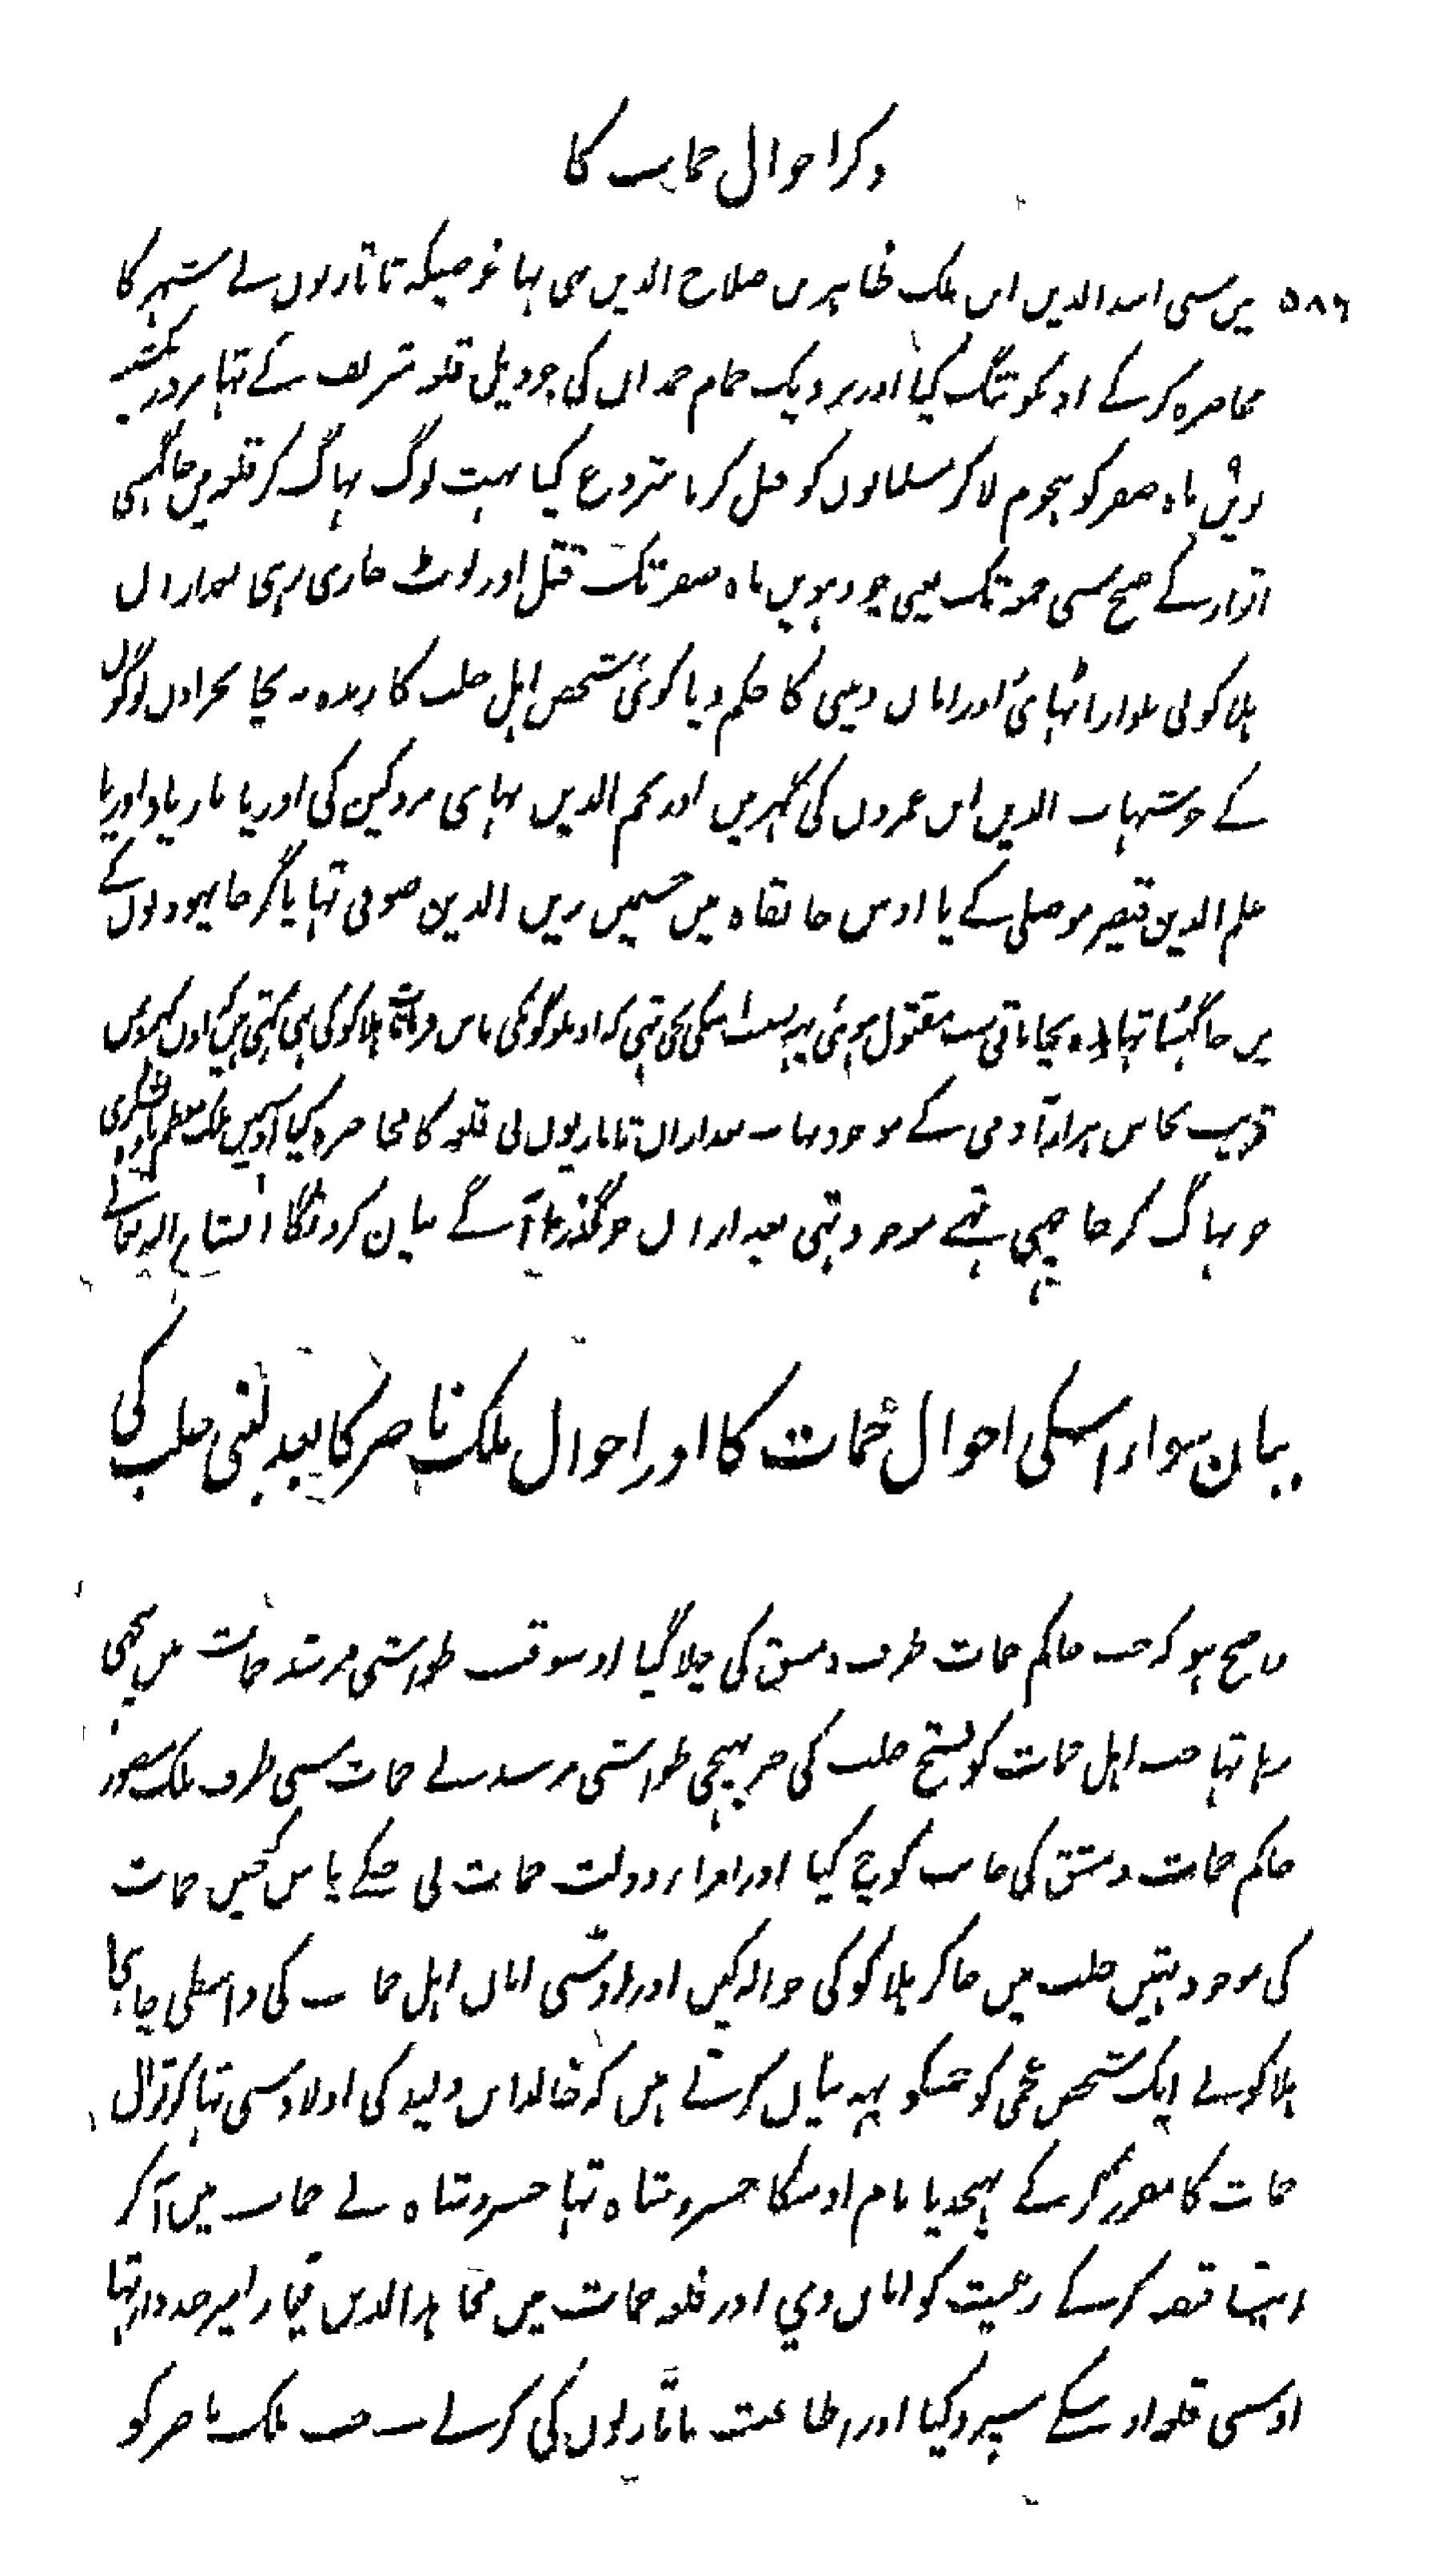 ذکر احوال حمات کا
۵۸۶ میں سی اسد الدین ابن ملک ظاہر بن صلاح الدین بھی تہا غرضیکہ تاتاریوں نے شہر کا
محاصرہ کر کے او نکو تنگ کیا اور نزدیک حمام حمدان کی جو ذیل قلعہ شریف کے تہا بروز یکشنبہ
نویں ماہ صفر کو ہجوم لا کر مسلمانوں کو قتل کرنا شروع کیا بہت لوگ بہاگ کر قلعہ میں جا گہسی
اتوار کے صبح سی جمعہ تک یعنی چودہویں ماہ صفر تک قتل اور لوٹ جاری رہی بعد ازاں
ہلاکو نی تلوار اٹہائی اور امان دینی کا حکم دیا کوئی شخص اہل حلب کا زندہ نہ بچا بجز اون لوگوں
کے جو شہاب الدین ابن عمرون کی گہر میں اور نجم الدین بہائی مردکین کی اور یا بازیاد اور یا
علم الدین قیصر موصلی کے یا اوس خانقاہ میں جسمیں زین الدین صوفی تہا یا گرجا یہودیوں کے
میں جا گہسا تہا وہ بچا باقی سب مقتول ہوئی یہہ سبب اسکی بچی تہی کہ اون لوگونکی پاس فرمان ہلاکو کی
قریب پچاس ہزار آدمی کے موجود تہا بعد ازاں تاتاریوں نی قلعہ کا محاصرہ کیا اوسمیں ملک معظم
جو بہاگ کر جا چہپی تہے موجود تہی بعد ازاں جو گذرا آگے بیان کرونگا انشاء اللہ تعالے
بیان سوار اسکی احوال حمات کا اور احوال ملک ناصر کا بعد لینی حلب کی
واضح ہو کہ جب حاکم حمات طرف دمشق کی چلا گیا اوسوقت طواشی مرشد حمات میں پیچہی
رہا تہا جب اہل حمات کو فتح حلب کی خبر پہنچی طواشی مرشد نے حمات سی طرف ملک منصور
حاکم حمات دمشق کی جانب کوچ کیا اور امراء دولت حمات نی جنکے پاس کنجیں حمات
کی موجود تہیں حلب میں جا کر ہلاکو کی حوالہ کیں اور اوسسی امان اہل حمات کی واسطی چاہی
ہلاکو نے ایک شخص عجمی کو جسکو یہہ بیان کرتے ہیں کہ خالد ابن ولید کی اولاد سی تہا کوتوال
حمات کا مقرر کر کے بہیجدیا نام اوسکا خسرو شاہ تہا خسرو شاہ نے حمات میں آ کر
اپنا قبضہ کر کے رعیت کو امان دی اور قلعہ حمات میں مجاہد الدین قیماز امیر جندار تہا
اوسسی قلعہ اوسکے سپرد کیا اور اطاعت تاتاریوں کی کرلے جب ملک ناصر کو